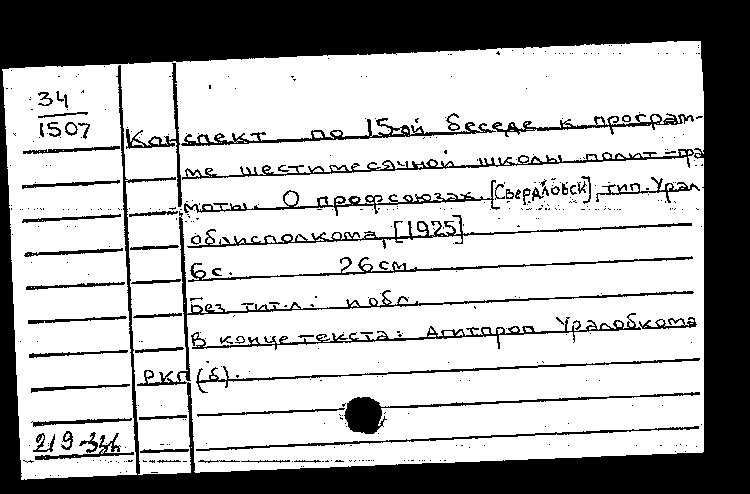 34
1507
Конспект по 15-ой беседе к програм-
ме шестимесячной школы полит-гра
моты. О профсоюзах. [Свердловск], тип. Урал
облисполкома, [1925]
6 с. 26 см.
Без тит. л.: п обл.
В конце текста: Агитпроп Уралобкома
РКП(б).
219